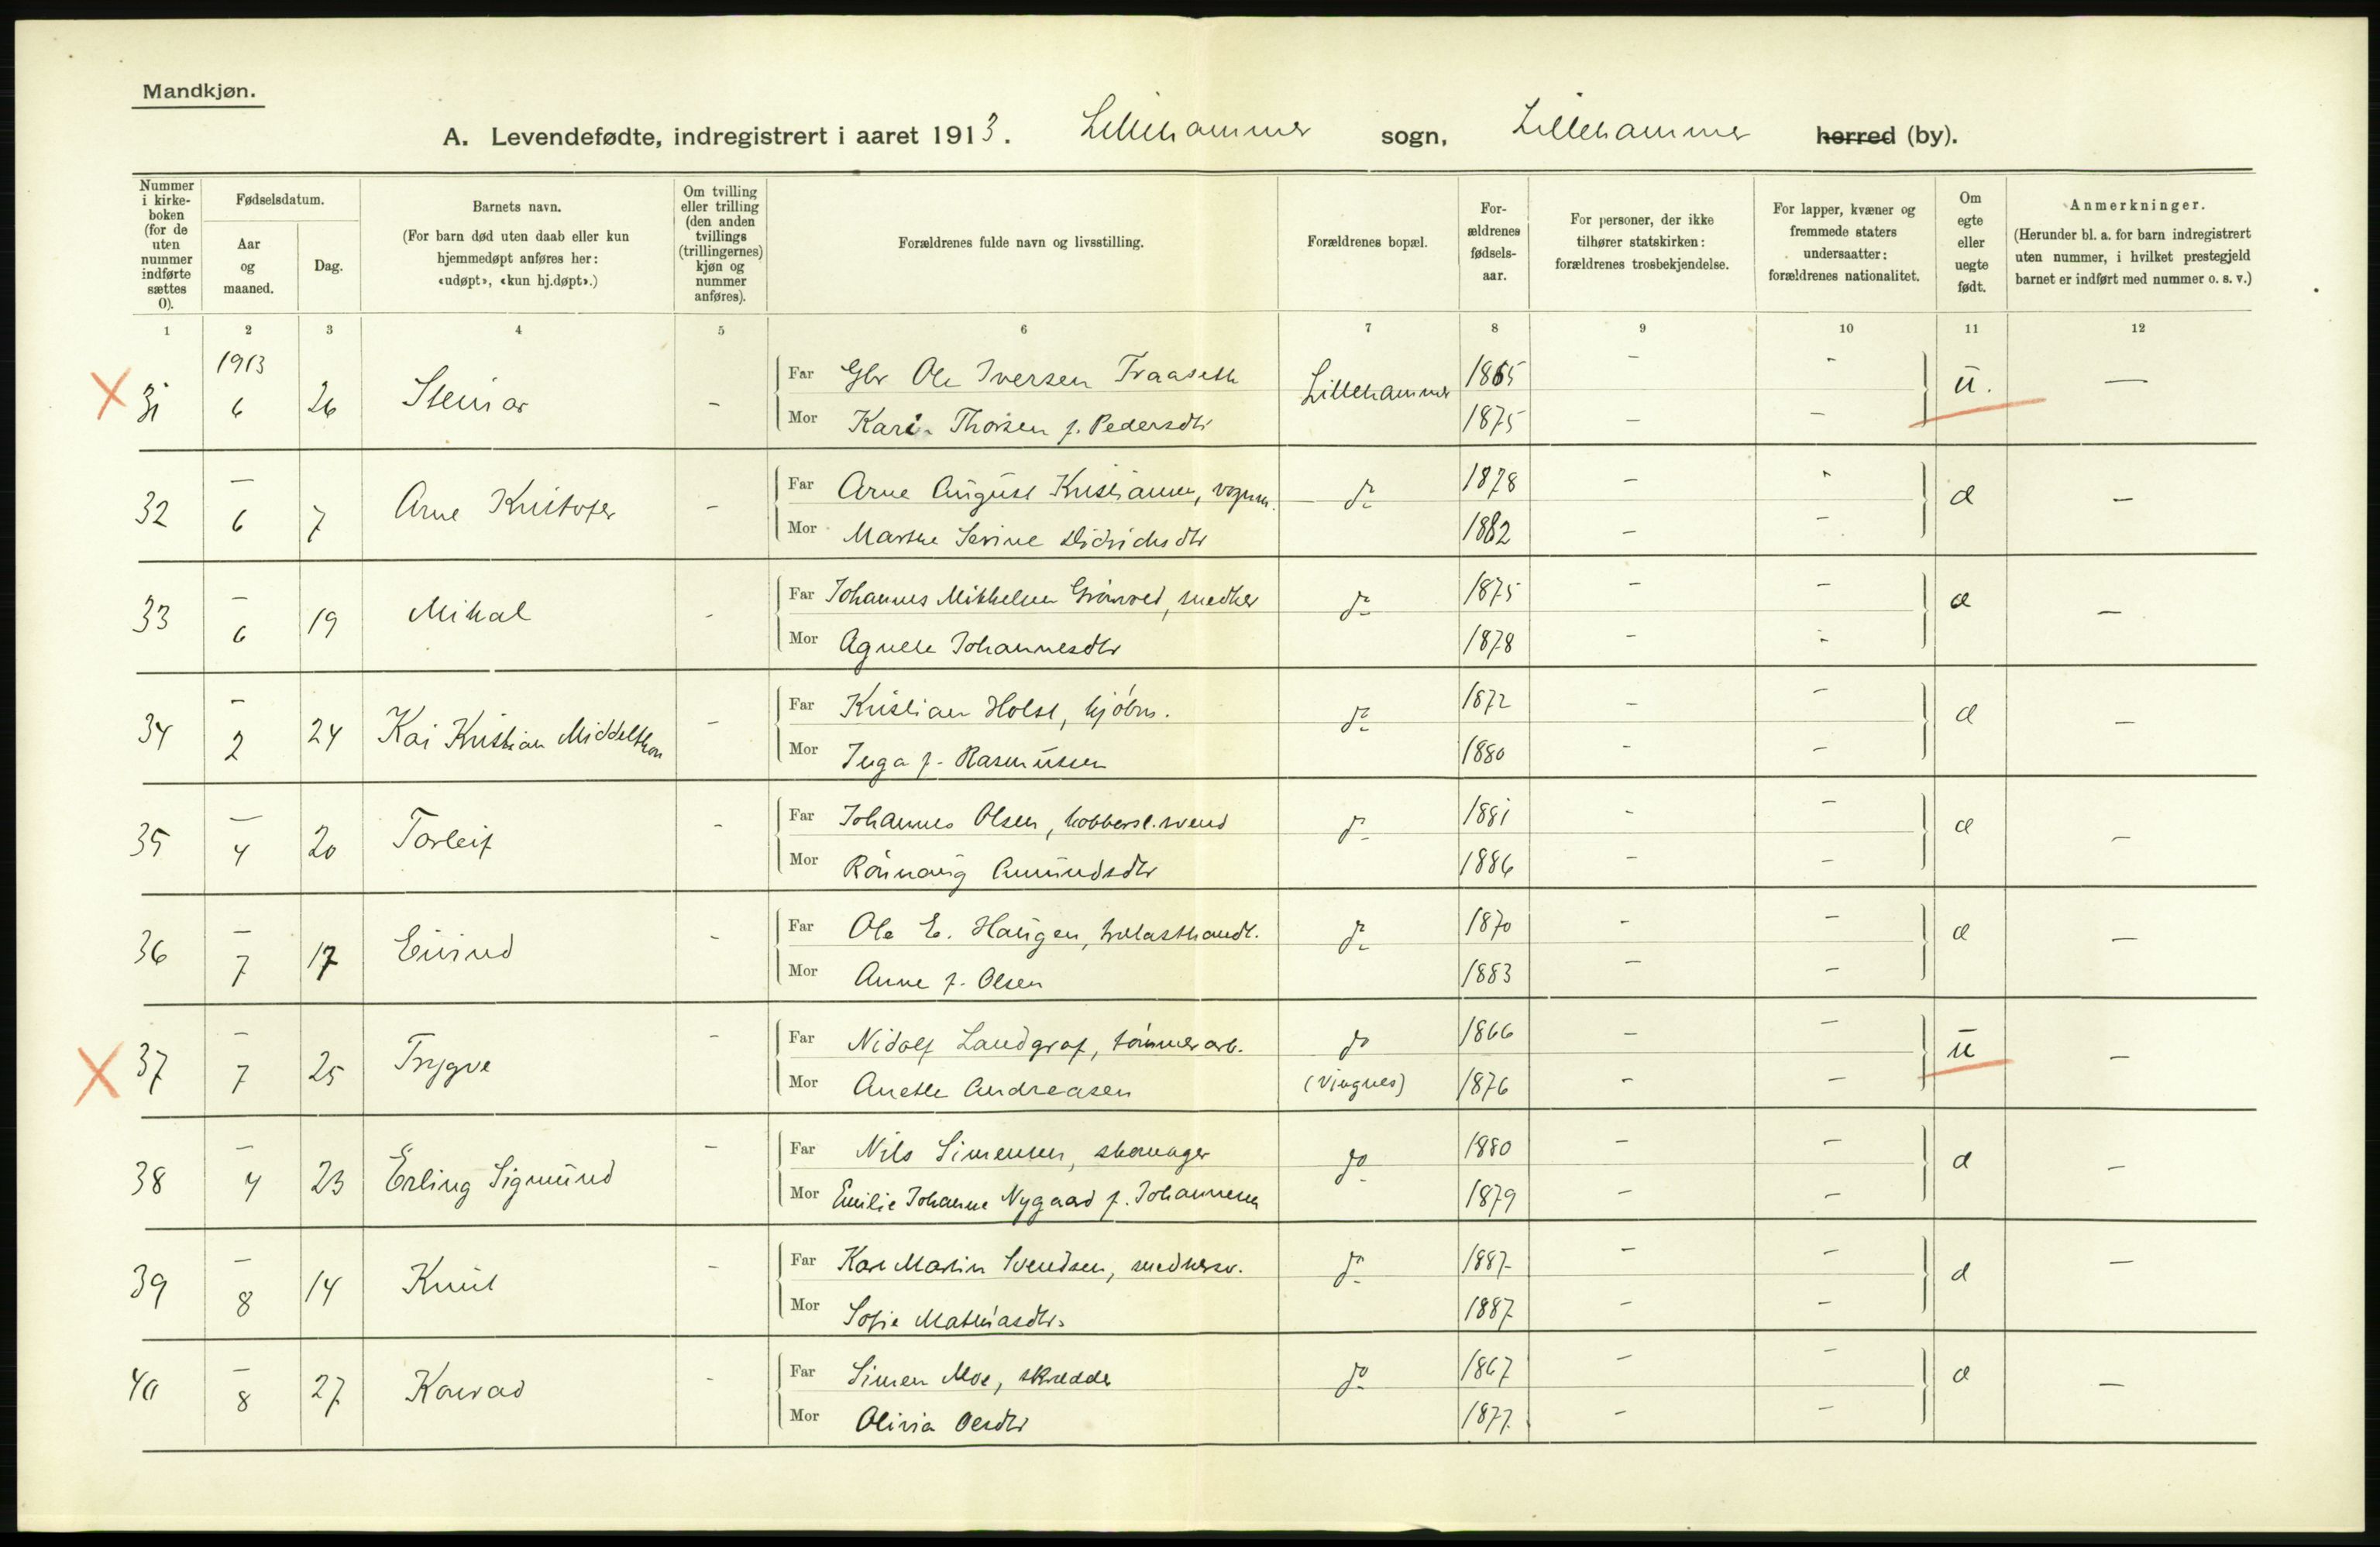 Mandkjøn.
A. Levendefødte, indregistrert i aaret 1913. Lillehammer sogn, Lillehammer herred (by).
Nummer i kirke-boken (for de uten nummer indførte sættes 0).
Fødselsdatum.
Aar og maaned.
Dag.
Barnets navn.
(For barn død uten daab eller kun hjemmedøpt anføres her: «udøpt», «kun hj.døpt».)
Om tvilling eller trilling (den anden tvillings (trillingernes) kjøn og nummer anføres).
Forældrenes fulde navn og livsstilling.
Forældrenes bopæl.
For-ældrenes fødsels-aar.
For personer, der ikke tilhører statskirken: forældrenes trosbekjendelse.
For lapper, kvæner og fremmede staters undersaatter: forældrenes nationalitet.
Om egte eller uegte født.
Anmerkninger.
(Herunder bl. a. for barn indregistrert uten nummer, i hvilket prestegjeld barnet er indført med nummer o. s. v.)
1 2 3 4 5 6 7 8 9 10 11 12
1913
X 31 6 26 Steinar - Far Gbr Ole Iversen Fraaseth Lillehammer 1865 - - u. —
Mor Kari Thorsen f. Pedersdtr 1875 - -
32 — 6 7 Arne Kristofer - Far Arne August Kristiansen, vognm. do 1878 - - d —
Mor Marthe Serine Didrichsdtr 1882 - -
33 — 6 19 Mihal - Far Johannes Mikkelsen Grønvel, snedker do 1875 - - d —
Mor Agnete Johannesdtr 1878 - -
34 — 2 24 Kai Kristian Middelthon - Far Kristian Holst, kjøbm. do 1872 - - d —
Mor Inga f. Rasmussen 1880 - -
35 — 4 20 Torleif - Far Johannes Olsen, kobbersl.svend do 1881 - - d —
Mor Rønnaug Amundsdtr 1886 - -
36 — 7 17 Eivind - Far Ole E. Haugen, trelasthandl. do 1870 - - d —
Mor Anne f. Olsen 1883 - -
X 37 — 7 25 Trygve - Far Nidolf Landgraf, tømmerarb. do 1866 - - u —
Mor Anette Andreasen (Vingnes) 1876 - -
38 — 4 23 Erling Sigmund - Far Nils Simensen, skomager do 1880 - - d —
Mor Emilie Johanne Nygaard f. Johannesen 1879 - -
39 — 8 14 Knut - Far Karl Martin Svendsen, snedkersv. do 1887 - - d —
Mor Sofie Mathiasdtr. 1887 - -
40 — 8 27 Konrad - Far Simen Moe, skrædder do 1867 - - d —
Mor Olivia Olsdtr 1877 - -